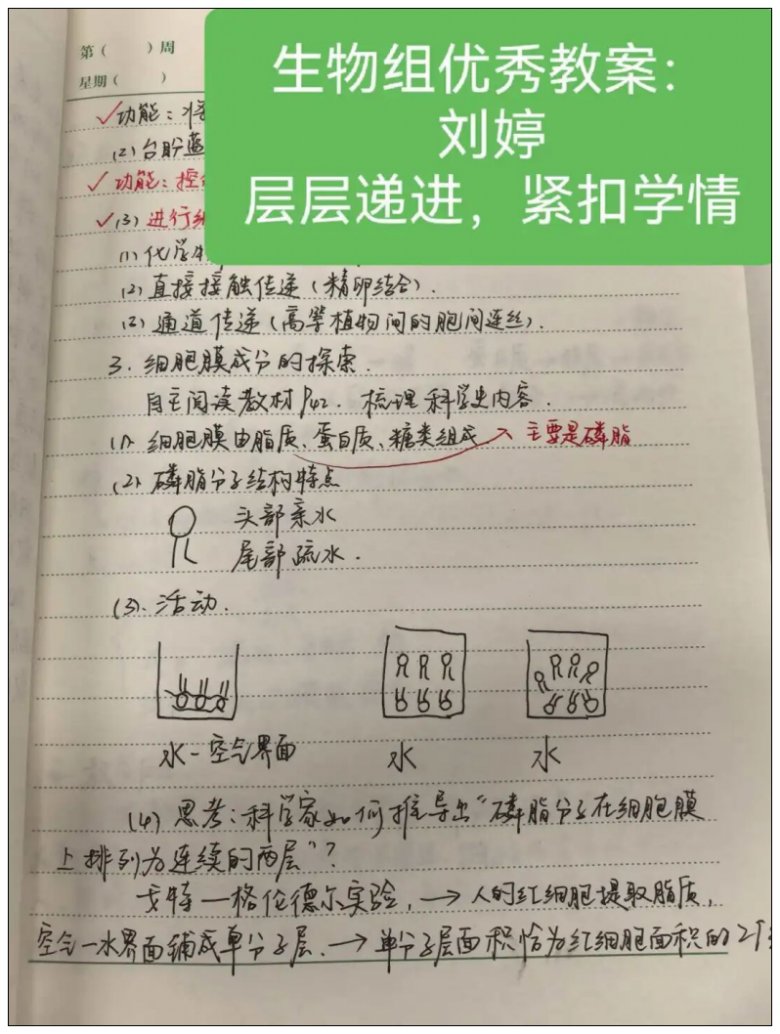 第（ ）周
星期（ ）
生物组优秀教案：
刘婷
层层递进，紧扣学情
✓功能：将
(2) 台盼蓝
✓功能：控
✓(3) 进行细
(1) 化学
(2) 直接接触传递（精卵结合）．
(3) 通道传递（高等植物间的胞间连丝）．
3．细胞膜成分的探索．
自主阅读教材P42．梳理科学史内容．
(1) 细胞膜由脂质、蛋白质、糖类组成 → 主要是磷脂
(2) 磷脂分子结构特点
头部亲水
尾部疏水．
(3)．活动．
水－空气界面 水 水
(4) 思考：科学家如何推导出“磷脂分子在细胞膜
上排列为连续的两层”？
戈特－格伦德尔实验，→ 人的红细胞提取脂质，
空气－水界面铺成单分子层．→ 单分子层面积恰为红细胞面积的2